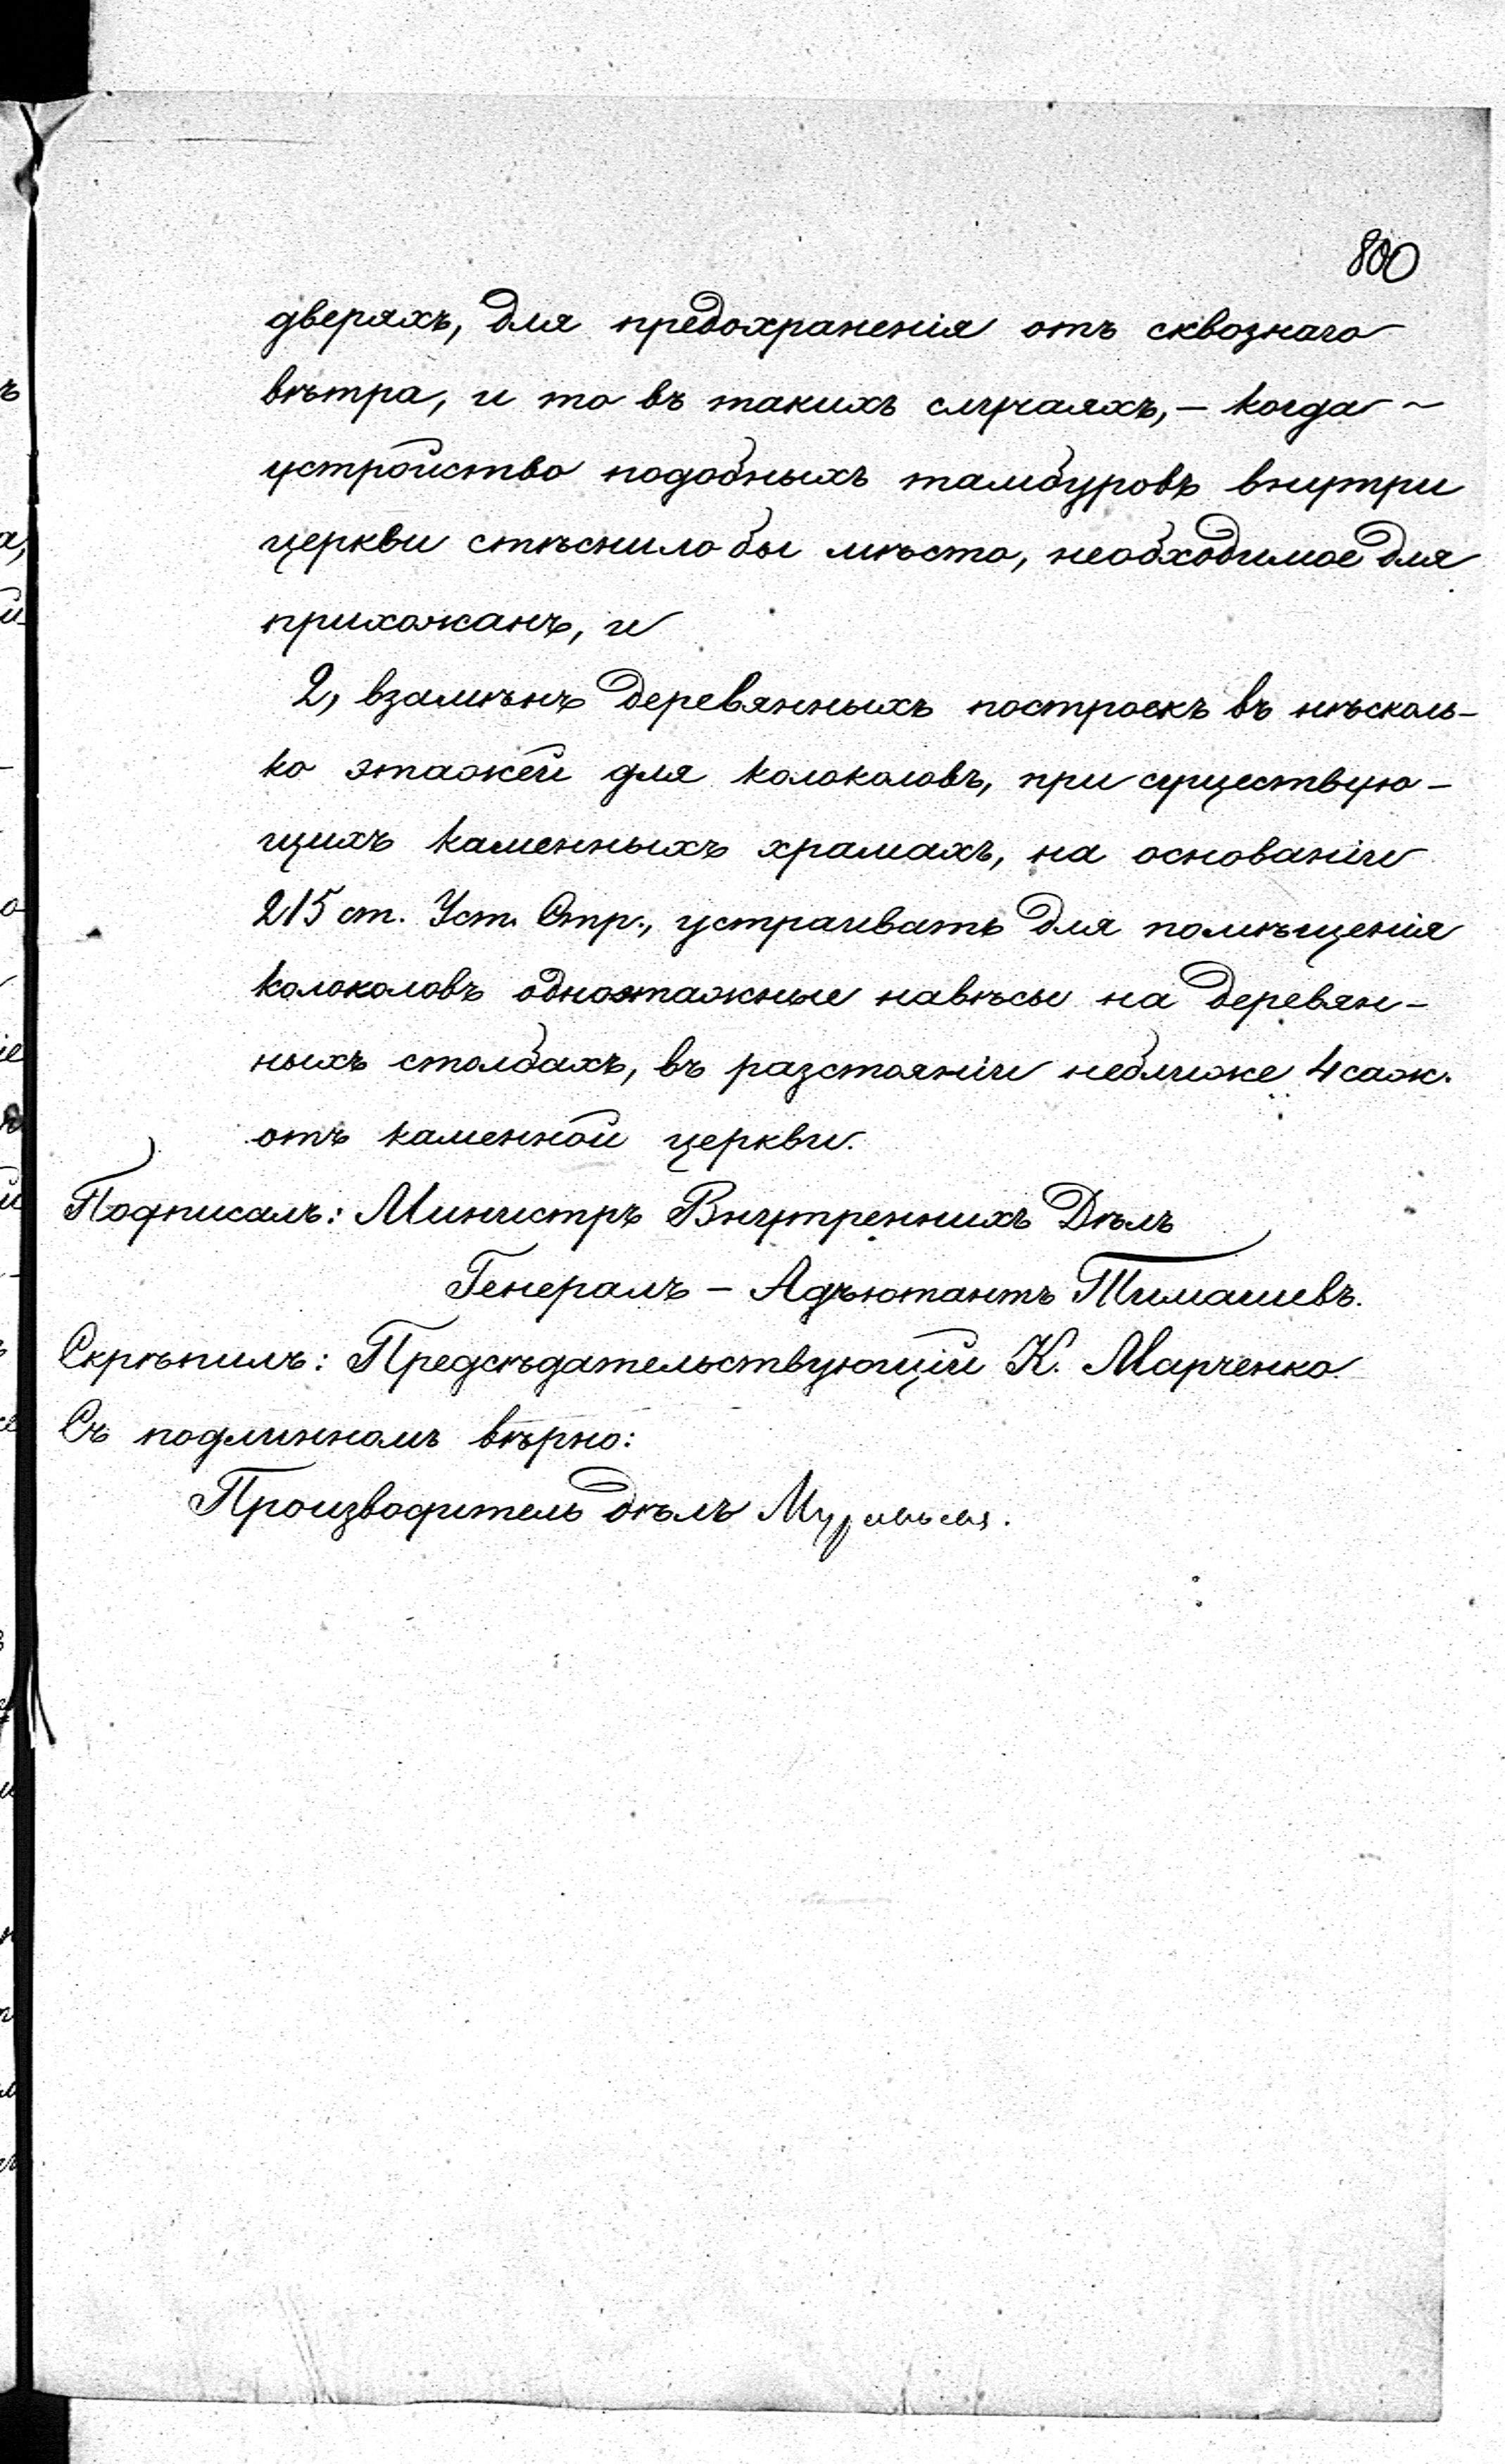 800
дверяхъ, для предохраненія отъ сквознаго
вѣтра, и то въ такихъ случаяхъ,— когда ~
устройство подобныхъ тамбуровъ внутри
церкви стѣснило бы мѣсто, необходимое для
прихожанъ, и
2, взамѣнъ деревянныхъ построекъ въ нѣсколь-
ко этажей для колоколовъ, при существую-
щихъ каменныхъ храмахъ, на основаніи
215 ст. Уст. Стр., устраивать для помѣщенія
колоколовъ одноэтажные навѣсы на деревян-
ныхъ столбахъ, въ разстояніи неближе 4 саж.
отъ каменной церкви.
Подписалъ: Министръ Внутреннихъ Дѣлъ
Генералъ – Адъютантъ Тимашевъ.
Скрѣпилъ: Предсѣдательствующій К. Марченко.
Съ подлиннымъ вѣрно:
Производитель дѣлъ